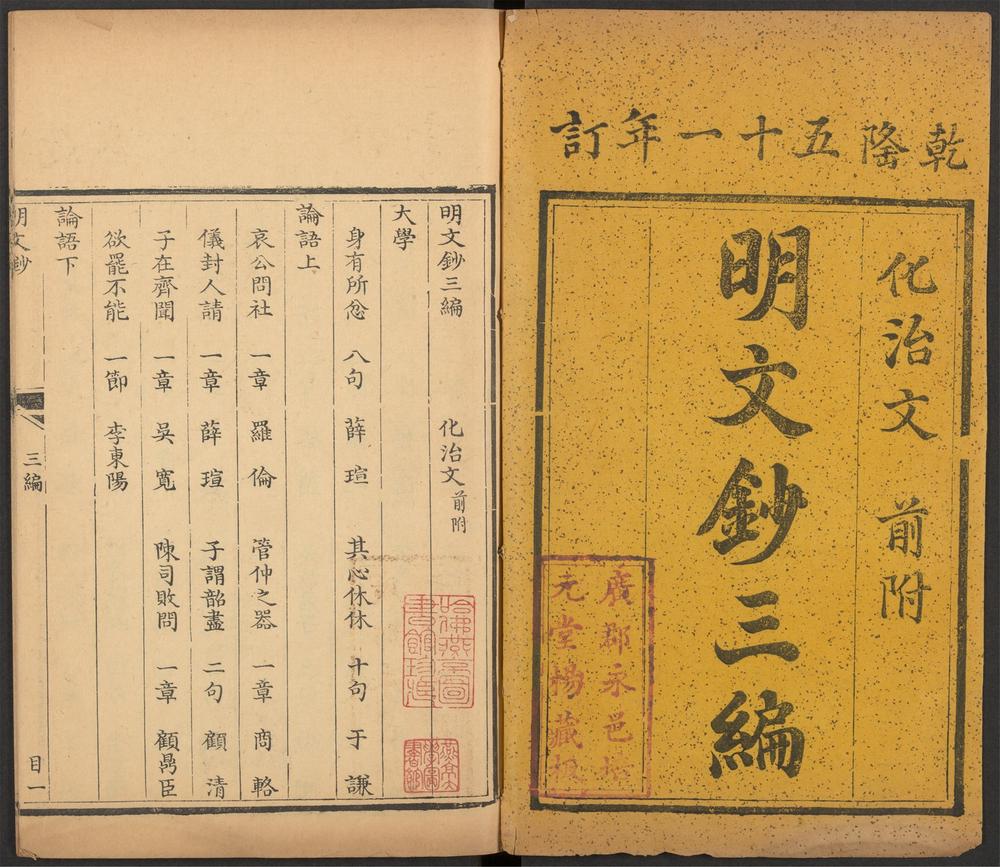 乾隆五十一年訂
化治文 前附
明文鈔三編
廣郡永邑
元堂楊藏板
明文鈔三編 化治文 前附
大學
身有所忿 八句 薛瑄 其心休休 十句 于謙
論語上
哀公問社 一章 羅倫 管仲之器 一章 商輅
儀封人請 一章 薛瑄 子謂韶盡 二句 顧清
子在齊聞 一章 吳寬 陳司敗問 一章 顧鼎臣
欲罷不能 一節 李東陽
論語下
明文鈔 三編 目一
哈佛燕京圖
書館珍藏